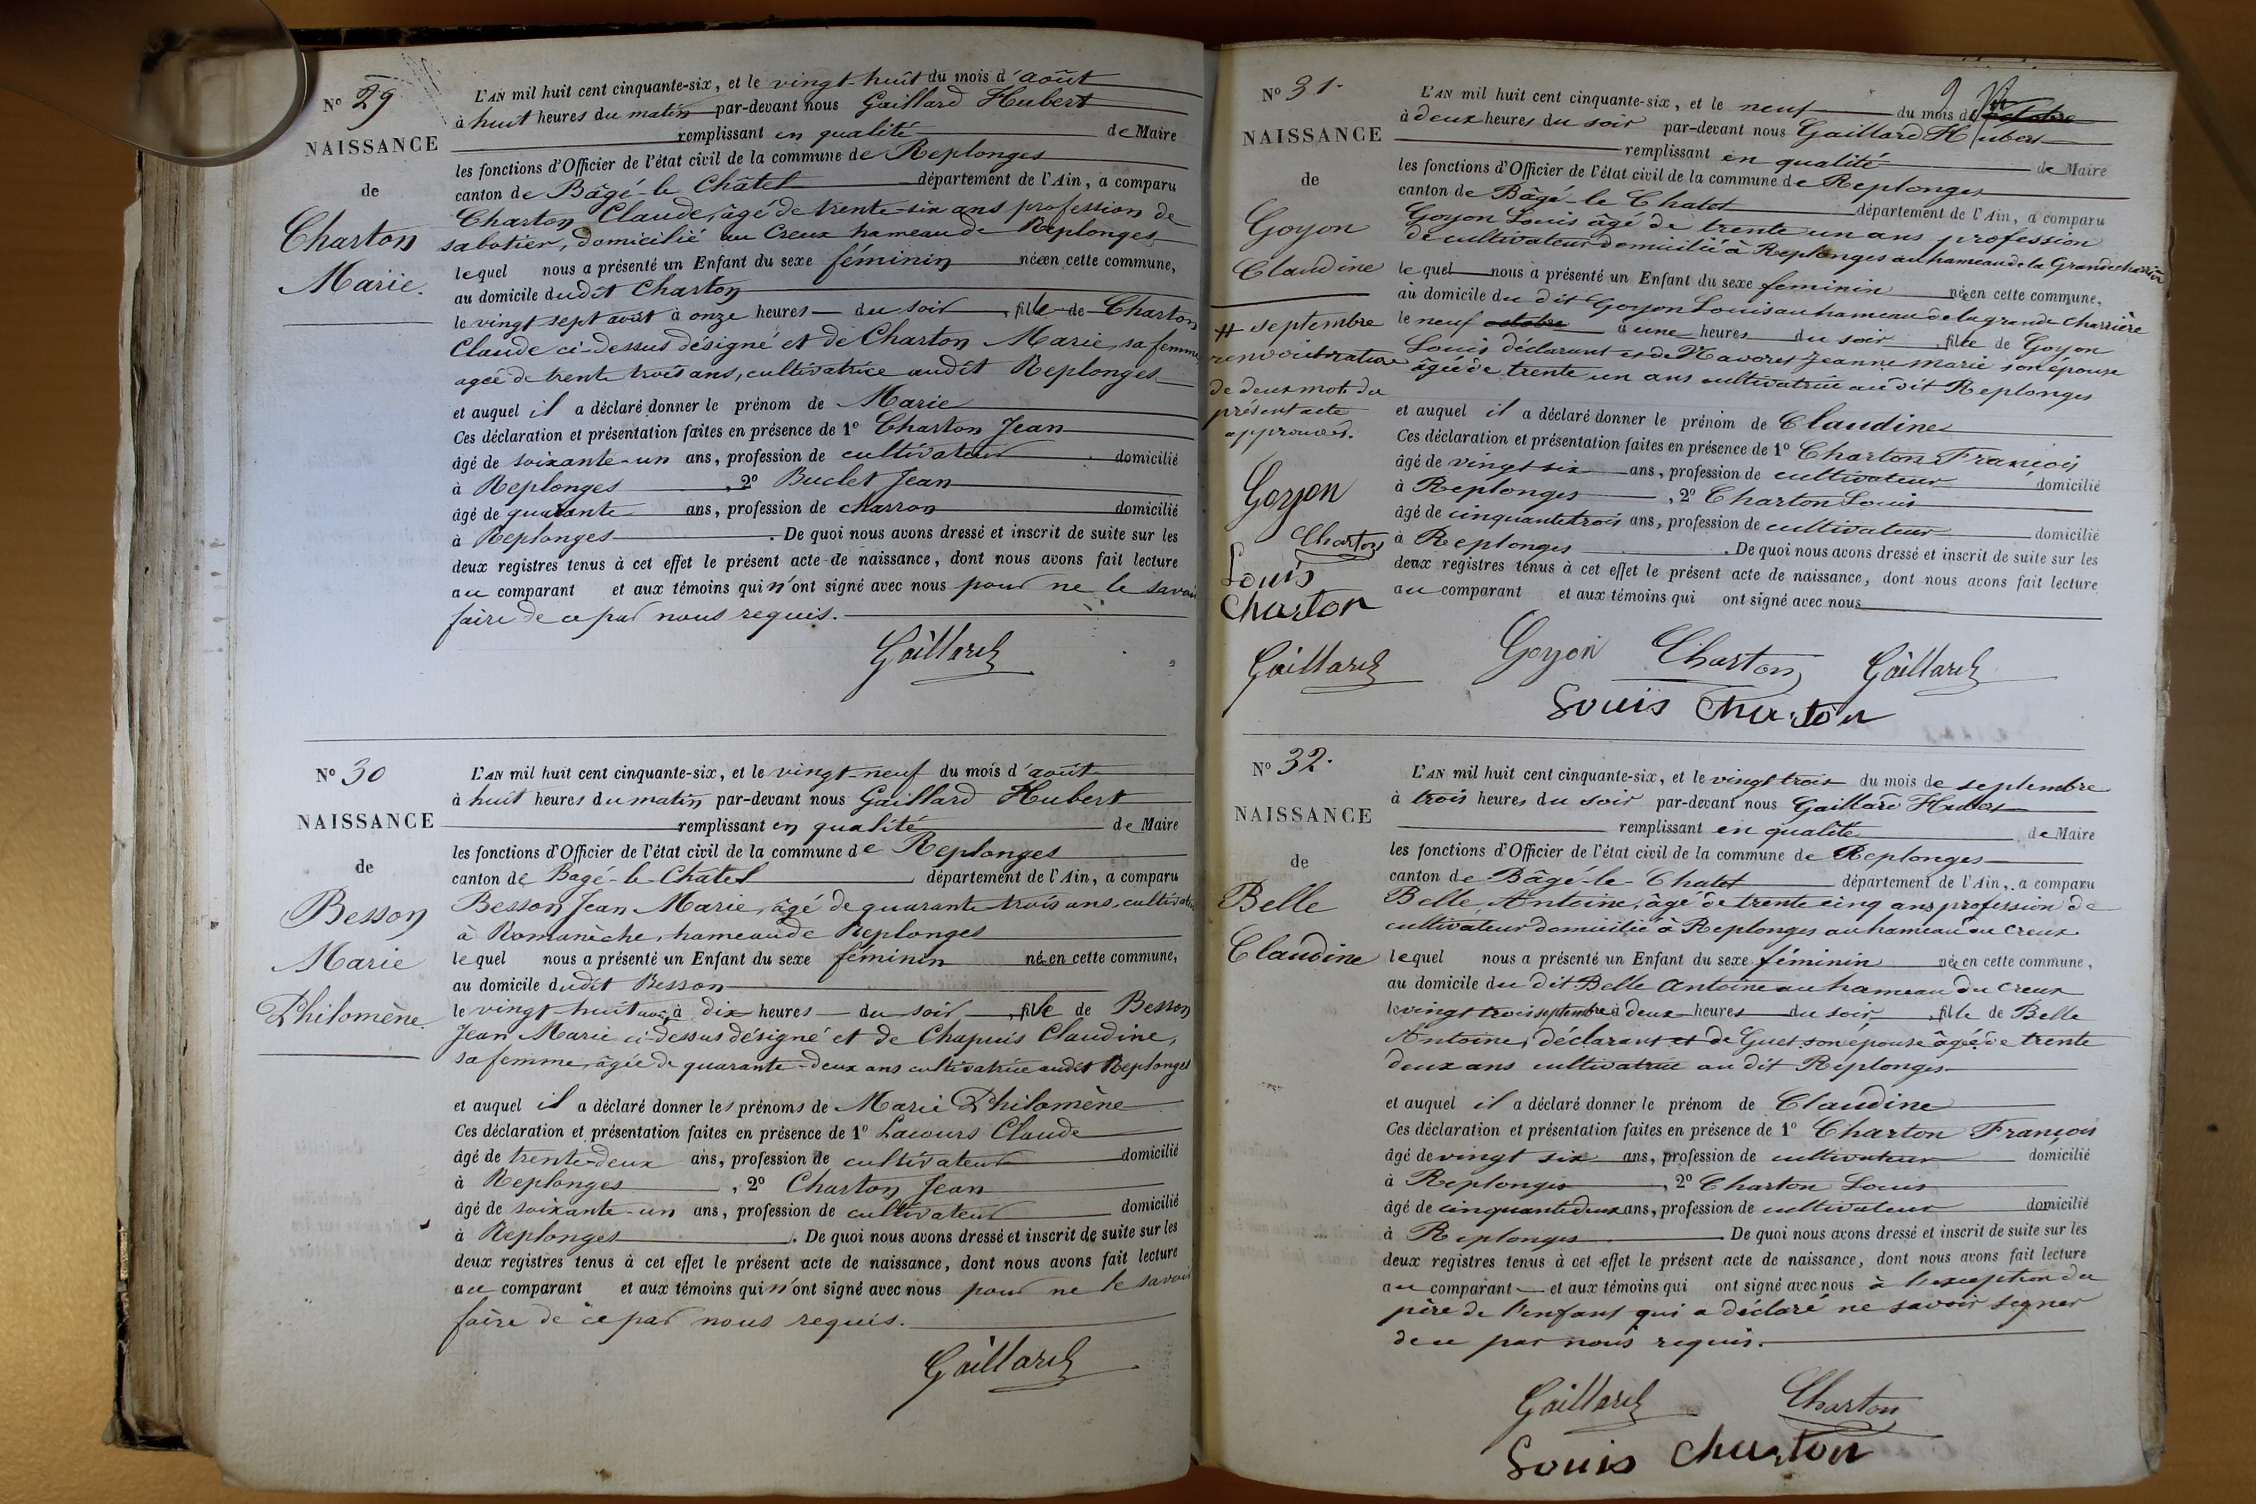 Nº 29
NAISSANCE
de
Charton
Marie.
L'AN mil huit cent cinquante-six, et le vingt-huit du mois d'août
à huit heures du matin par-devant nous Gaillard Hubert
remplissant en qualité de Maire
les fonctions d'Officier de l'état civil de la commune de Replonges
canton de Bâgé-le Châtel département de l'Ain, a comparu
Charton Claude, âgé de trente-six ans profession de
sabotier, domicilié au Creux hameau de Replonges
lequel nous a présenté un Enfant du sexe féminin née en cette commune,
au domicile dudit Charton
le vingt sept août à onze heures du soir, fille de Charton
Claude ci-dessus désigné et de Charton Marie, sa femme
ageé de trente trois ans, cultivatrice audit Replonges
et auquel il a déclaré donner le prénom de Marie
Ces déclaration et présentation faites en présence de 1º Charton Jean
âgé de soixante-un ans, profession de cultivateur domicilié
à Replonges, 2º Buclet Jean
âgé de quarante ans, profession de charron domicilié
à Replonges. De quoi nous avons dressé et inscrit de suite sur les
deux registres tenus à cet effet le présent acte de naissance, dont nous avons fait lecture
au comparant et aux témoins qui n'ont signé avec nous pour ne le savoir
faire de ce par nous requis.
Gaillard
Nº 30
NAISSANCE
de
Besson
Marie
Philomène.
L'AN mil huit cent cinquante-six, et le vingt-neuf du mois d'août
à huit heures du matin par-devant nous Gaillard Hubert
remplissant en qualité de Maire
les fonctions d'Officier de l'état civil de la commune de Replonges
canton de Bagé-le Châtel département de l'Ain, a comparu
Besson Jean Marie, âgé de quarante trois ans, cultivateur
à Romanèche, hameau de Replonges
lequel nous a présenté un Enfant du sexe féminin née en cette commune,
au domicile dudit Besson
le vingt-huit août à dix heures du soir, fille de Besson
Jean Marie ci-dessus désigné et de Chapuis Claudine,
sa femme, âgée de quarante-deux ans cultivatrice audit Replonges
et auquel il a déclaré donner les prénoms de Marie Philomène
Ces déclaration et présentation faites en présence de 1º Lacours Claude
âgé de trente-deux ans, profession de cultivateur domicilié
à Replonges, 2º Charton Jean
âgé de soixante-un ans, profession de cultivateur domicilié
à Replonges. De quoi nous avons dressé et inscrit de suite sur les
deux registres tenus à cet effet le présent acte de naissance, dont nous avons fait lecture
au comparant et aux témoins qui n'ont signé avec nous pour ne le savoir
faire de ce par nous requis.
Gaillard
Nº 31.
NAISSANCE
de
Goyon
Claudine
# septembre
renvoi et rature
de deux mots du
présent acte
approuvés.
Goyon
Charton
Louis
Charton
Gaillard
L'AN mil huit cent cinquante-six, et le neuf du mois de octobre
à deux heures du soir par-devant nous Gaillard Hubert
remplissant en qualité de Maire
les fonctions d'Officier de l'état civil de la commune de Replonges
canton de Bâgé-le Chatel département de l'Ain, a comparu
Goyon Louis âgé de trente un ans profession
de cultivateur domicilié à Replonges au hameau de la Grande charrière
lequel nous a présenté un Enfant du sexe feminin née en cette commune,
au domicile du dit Goyon Louis au hameau de la grande Charrière
le neuf octobre à une heures du soir, fille de Goyon
Louis déclarant et de Jeanne Marie son épouse
âgée de trente un ans cultivatrice au dit Replonges
et auquel il a déclaré donner le prénom de Claudine
Ces déclaration et présentation faites en présence de 1º Charton François
âgé de vingt six ans, profession de cultivateur domicilié
à Replonges, 2º Charton Louis
âgé de cinquante trois ans, profession de cultivateur domicilié
à Replonges. De quoi nous avons dressé et inscrit de suite sur les
deux registres tenus à cet effet le présent acte de naissance, dont nous avons fait lecture
au comparant et aux témoins qui ont signé avec nous
Goyon Charton Gaillard
Louis Charton
Nº 32.
NAISSANCE
de
Belle
Claudine
L'AN mil huit cent cinquante-six, et le vingt trois du mois de septembre
à trois heures du soir par-devant nous Gaillard Hubert
remplissant en qualité de Maire
les fonctions d'Officier de l'état civil de la commune de Replonges
canton de Bâgé-le Chatel département de l'Ain, a comparu
Belle Antoine, âgé de trente cinq ans profession de
cultivateur domicilié à Replonges au hameau du Creux
lequel nous a présenté un Enfant du sexe féminin née en cette commune,
au domicile du dit Belle Antoine au hameau du Creux
le vingt trois septembre à deux heures du soir, fille de Belle
Antoine, déclarant et de Guet son épouse âgée de trente
deux ans cultivatrice au dit Replonges
et auquel il a déclaré donner le prénom de Claudine
Ces déclaration et présentation faites en présence de 1º Charton François
âgé de vingt six ans, profession de cultivateur domicilié
à Replonges, 2º Charton Louis
âgé de cinquante deux ans, profession de cultivateur domicilié
à Replonges. De quoi nous avons dressé et inscrit de suite sur les
deux registres tenus à cet effet le présent acte de naissance, dont nous avons fait lecture
au comparant et aux témoins qui ont signé avec nous à l'exception du
père de l'enfant qui a déclaré ne savoir signer
de ce par nous requis.
Gaillard Charton
Louis Charton